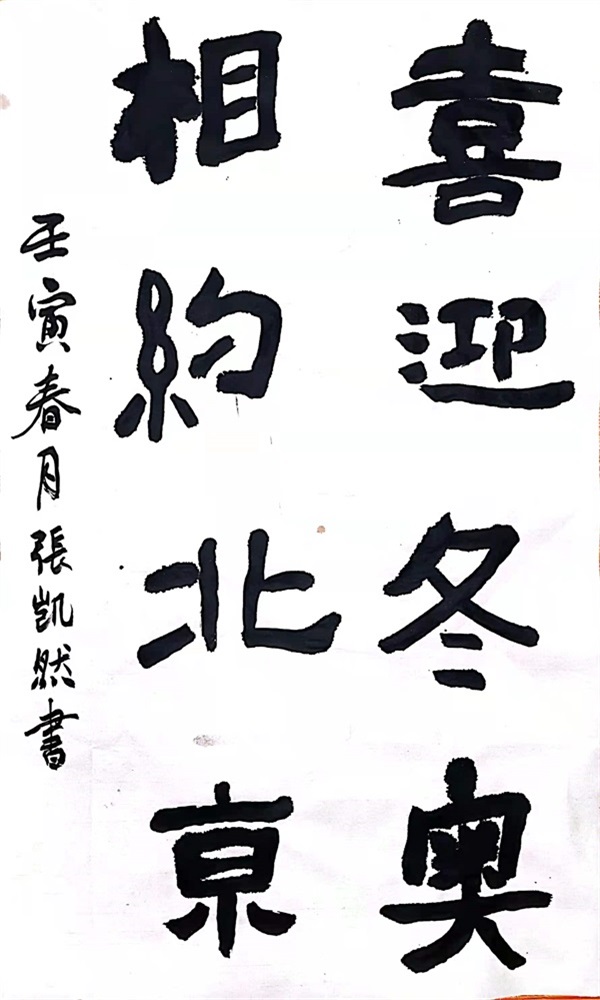 喜迎冬奥
相約北京
壬寅春月張凱然書